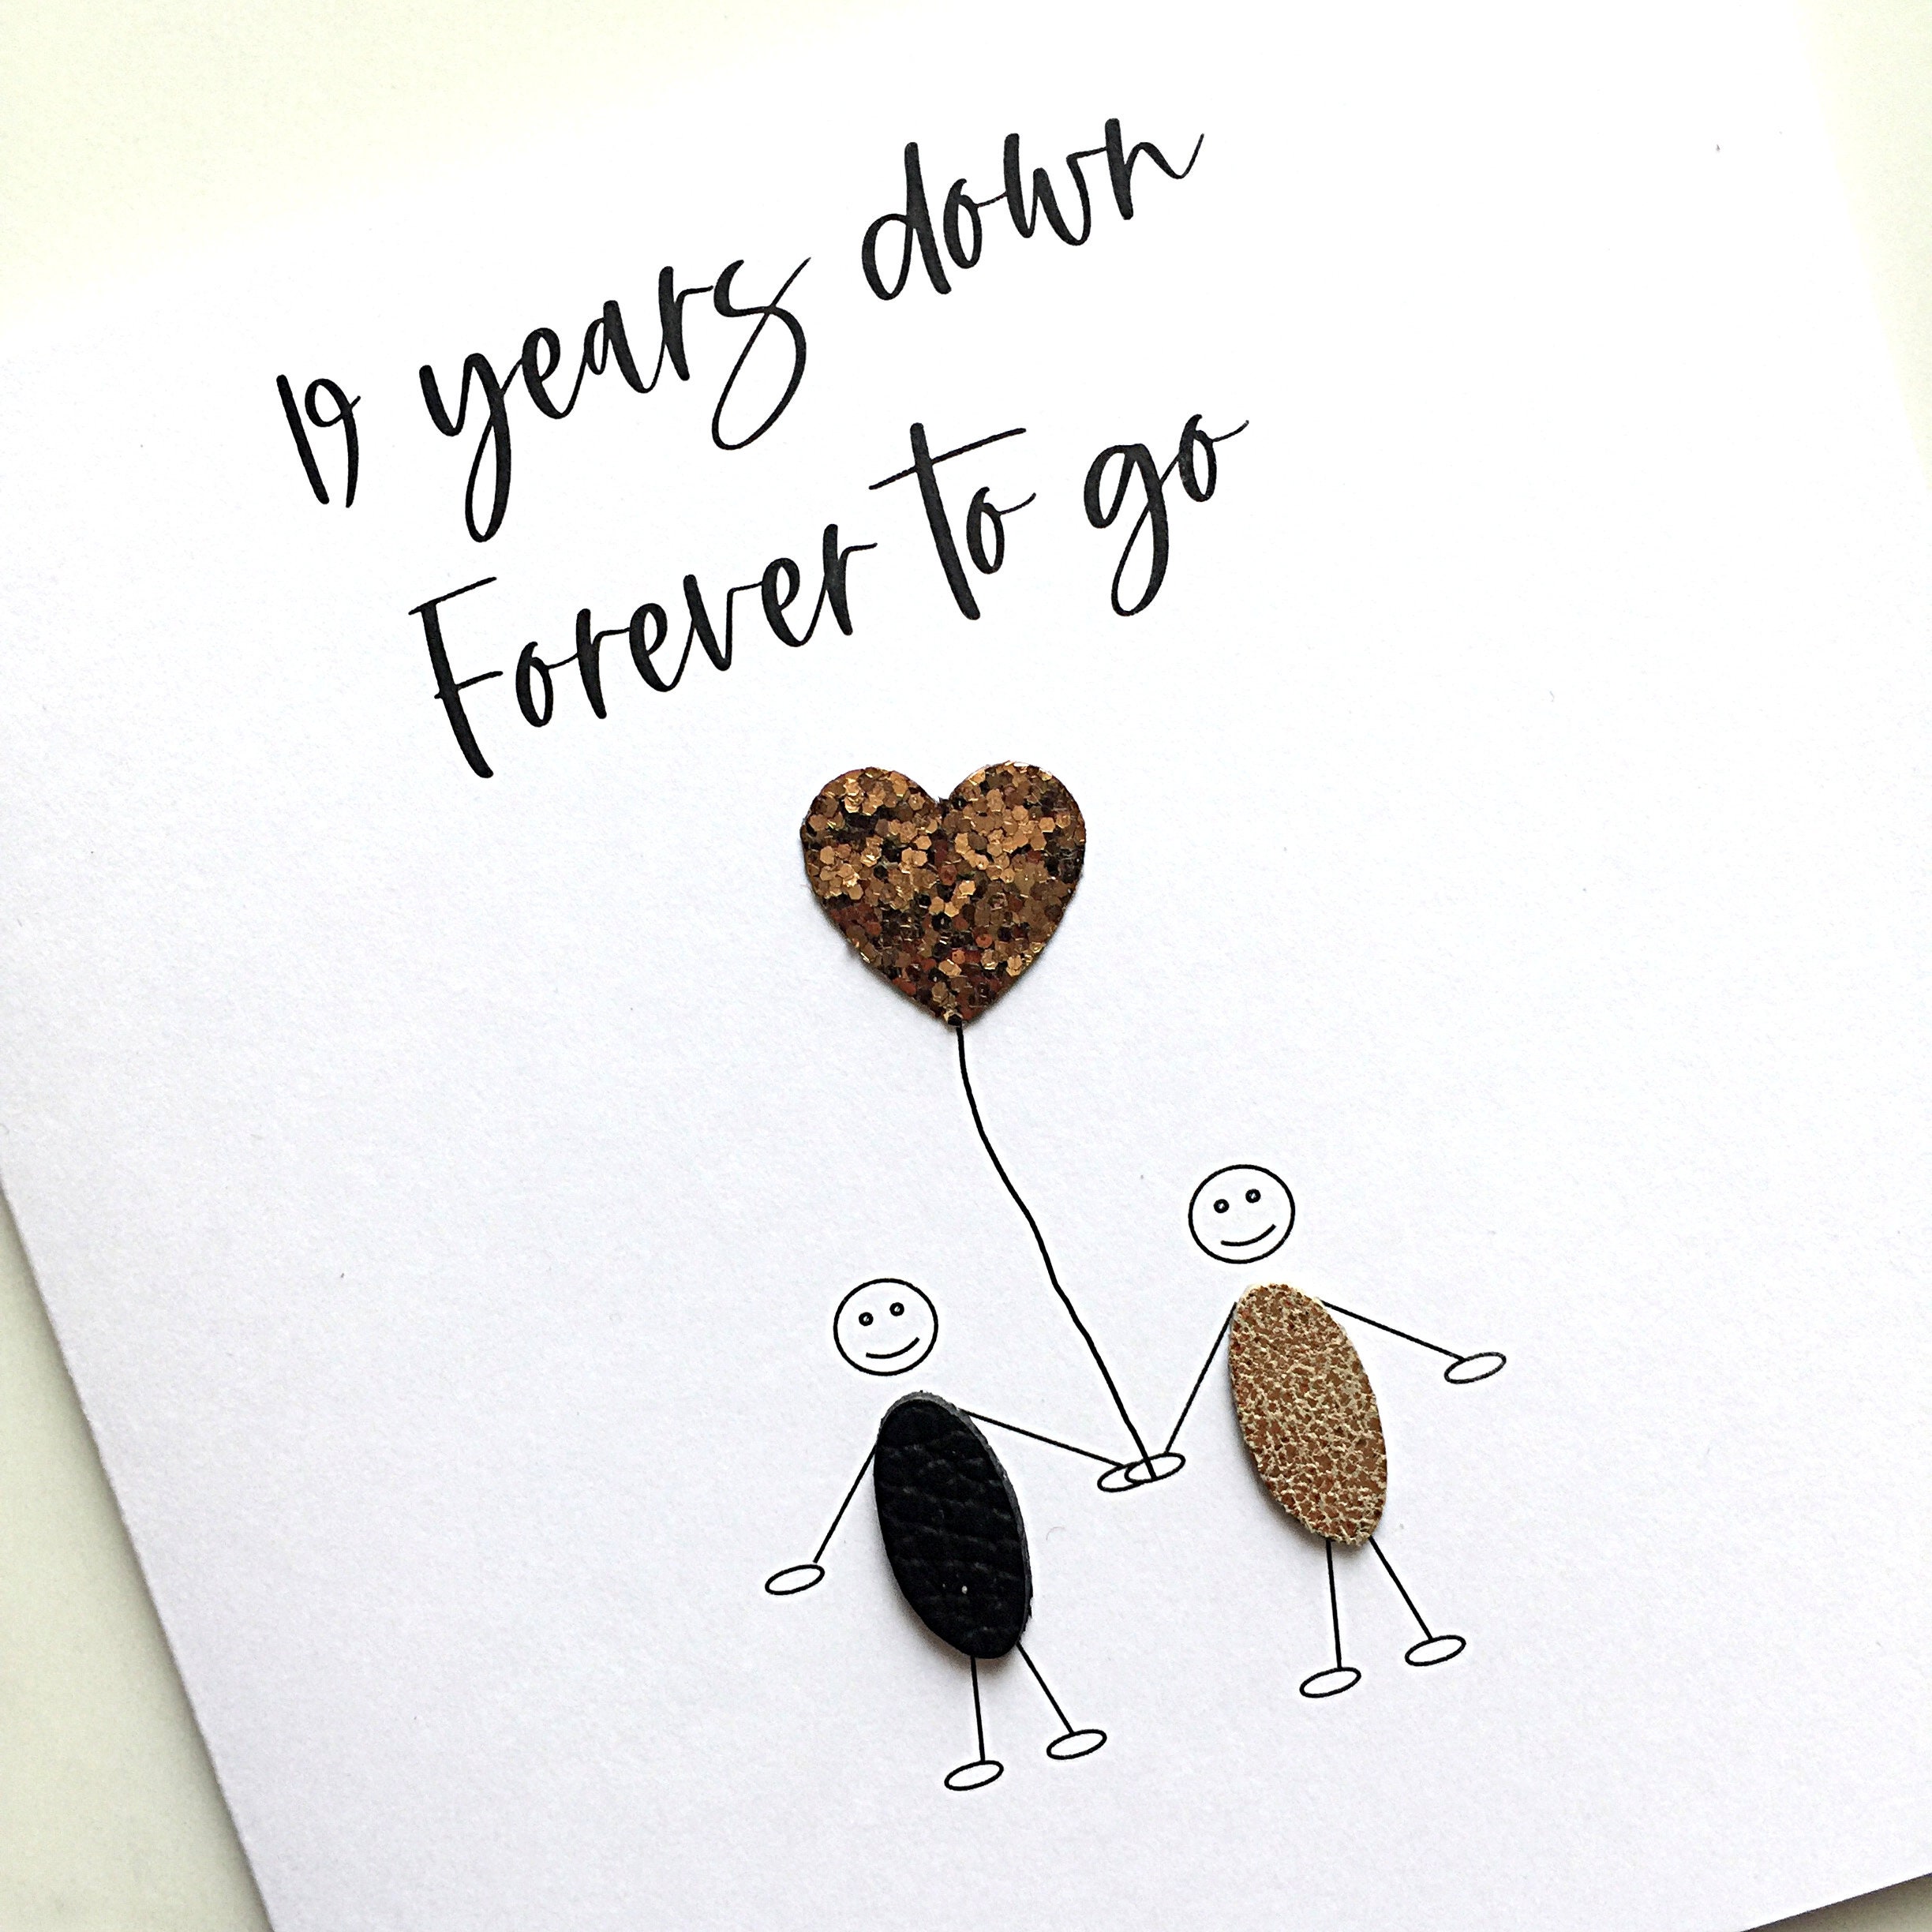 19 years down
Forever to go